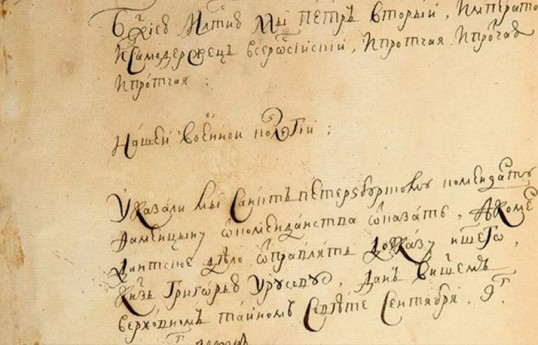 Бжiею Млтiю Мы Петръ вторый, Императо
и Самодержецъ всеросiискiй, и протчая, и протчая
и протчая:
Нашей военной колегiи:
Указали мы Санктъпетербургскому коменданту
от комендантства отказать, а коме
дантское дело отправлять до указу нашего,
Князь Григорью Урусову, данъ в нашемъ
верховномъ тайномъ Совѣте Сентября,